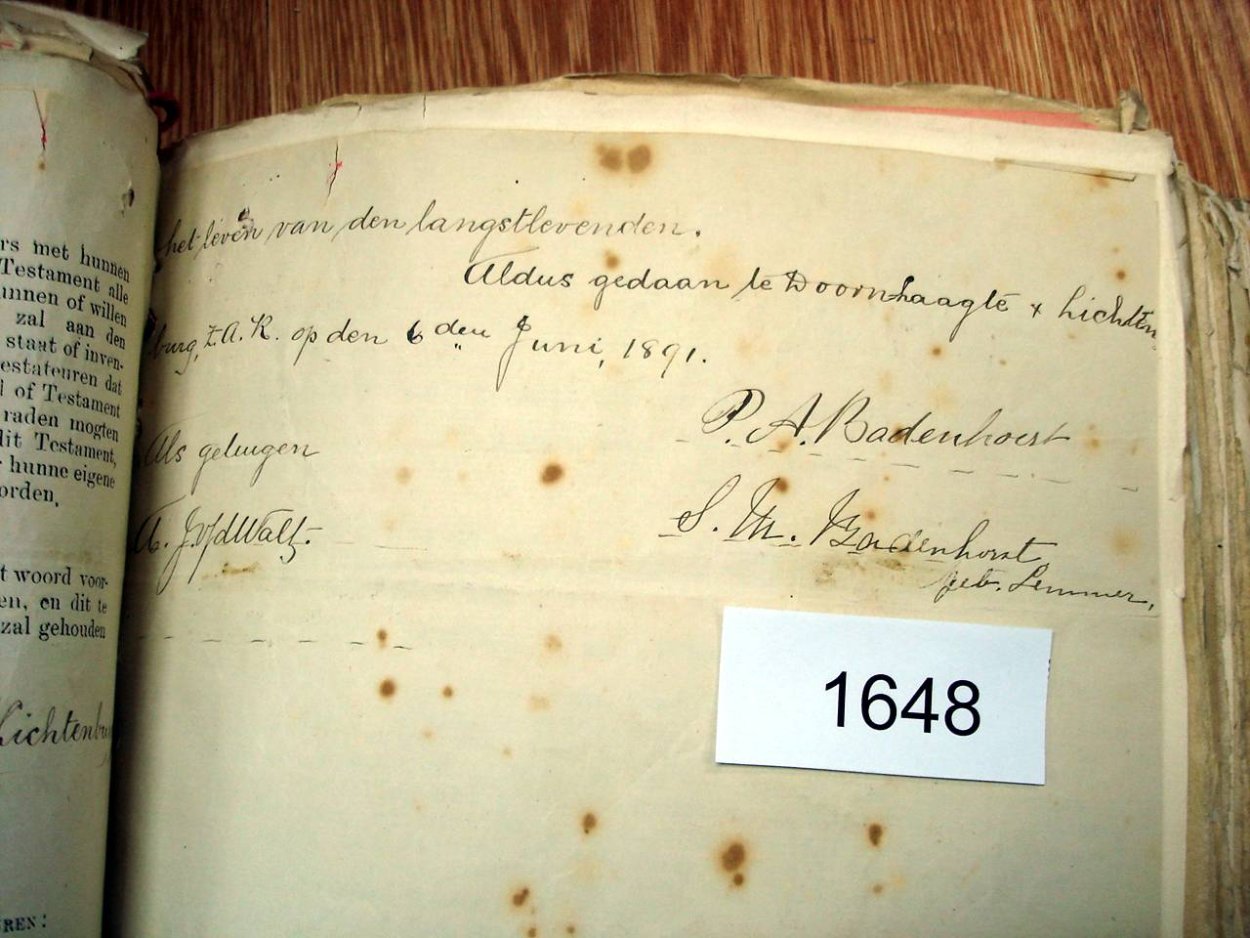 rs met hunnen
Testament alle
unnen of willen
zal aan den
staat of inven-
estateuren dat
l of Testament
raden mogten
dit Testament,
r hunne eigene
orden.
t woord voor-
en, en dit te
zal gehouden
Lichtenbu
REN:
het leven van den langstlevenden.
Aldus gedaan te Doornlaagte & Lichten
burg, Z.A.R. op den 6den Juni, 1891.
P. A. Badenhorst
Als getuigen
S. M. Badenhorst
geb. Lemmer,
A. J. v/d Walt.
1648